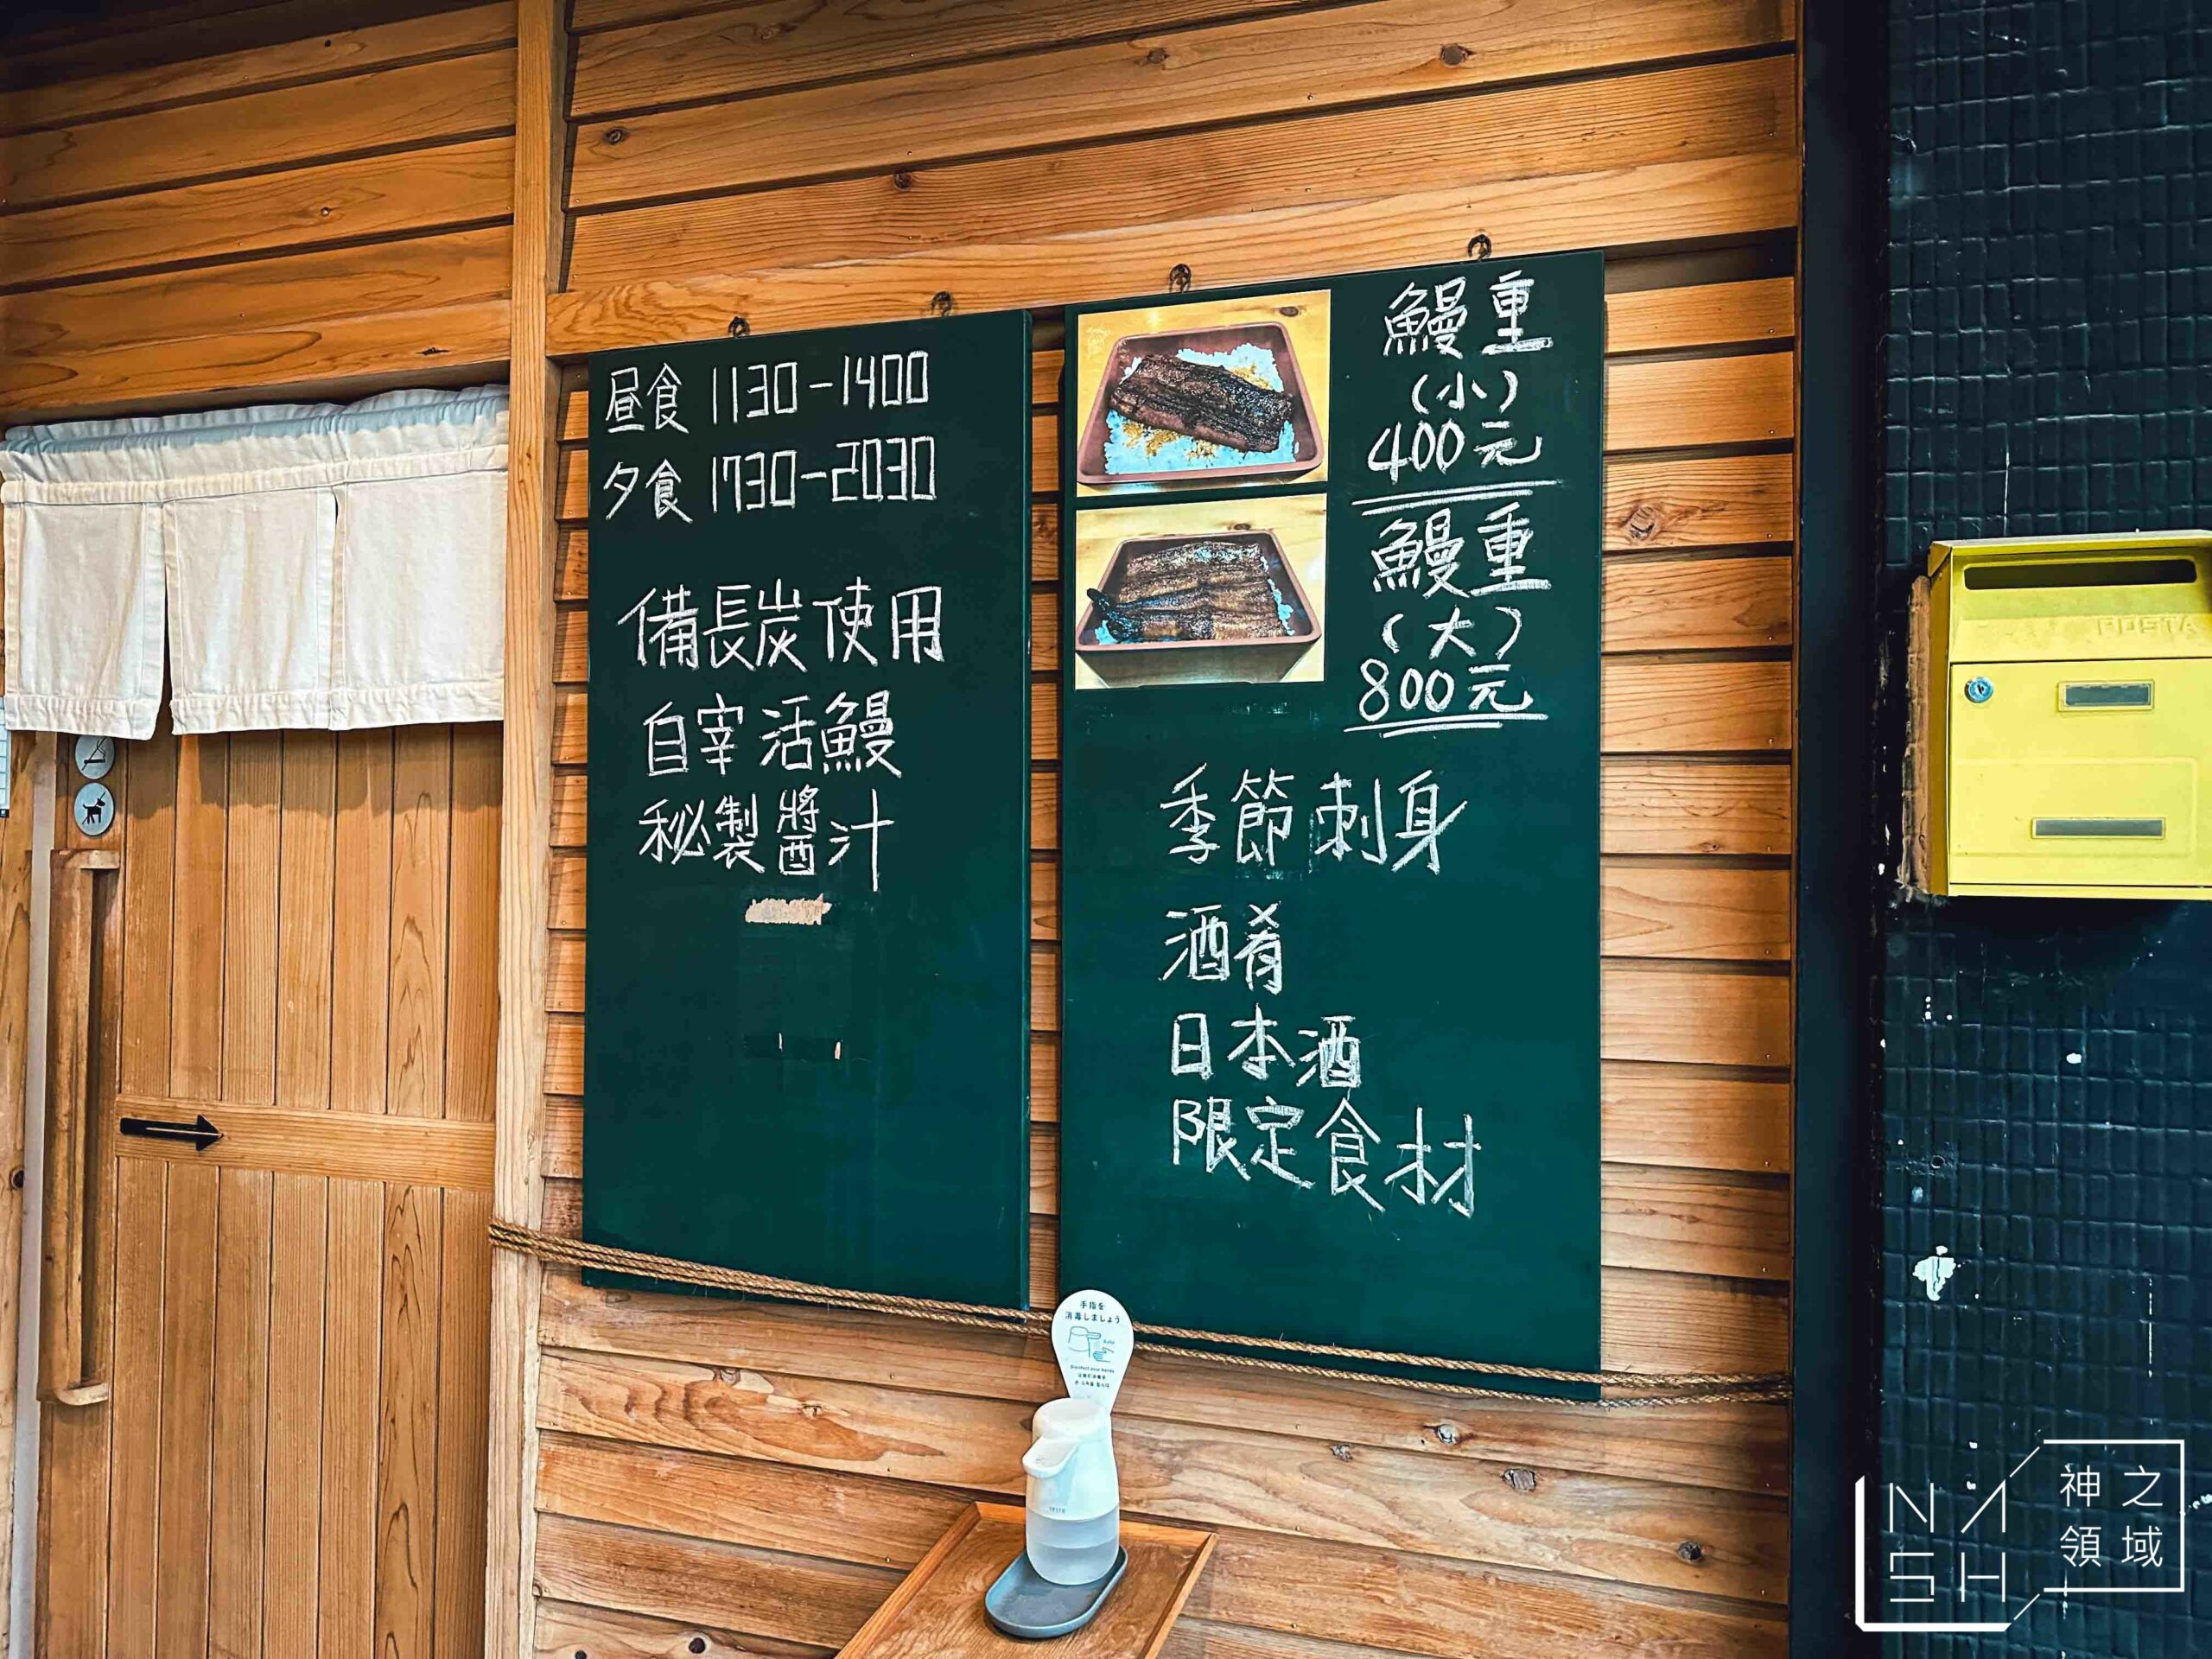 昼食 1130-1400
夕食 1730-2030
備長炭使用
自宰活鰻
秘製醬汁
鰻重
(小)
400元
鰻重
(大)
800元
季節刺身
酒肴
日本酒
限定食材
手指を
消毒しましょう
NASH
神之
領域